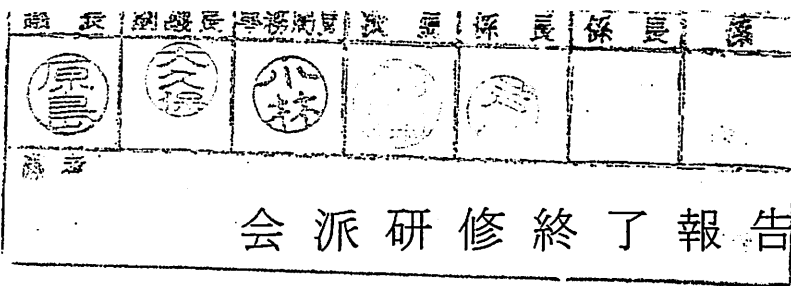 議長 副議長 事務局長 次長 係長 係長 係
原島 大久保 小林
会派研修終了報告